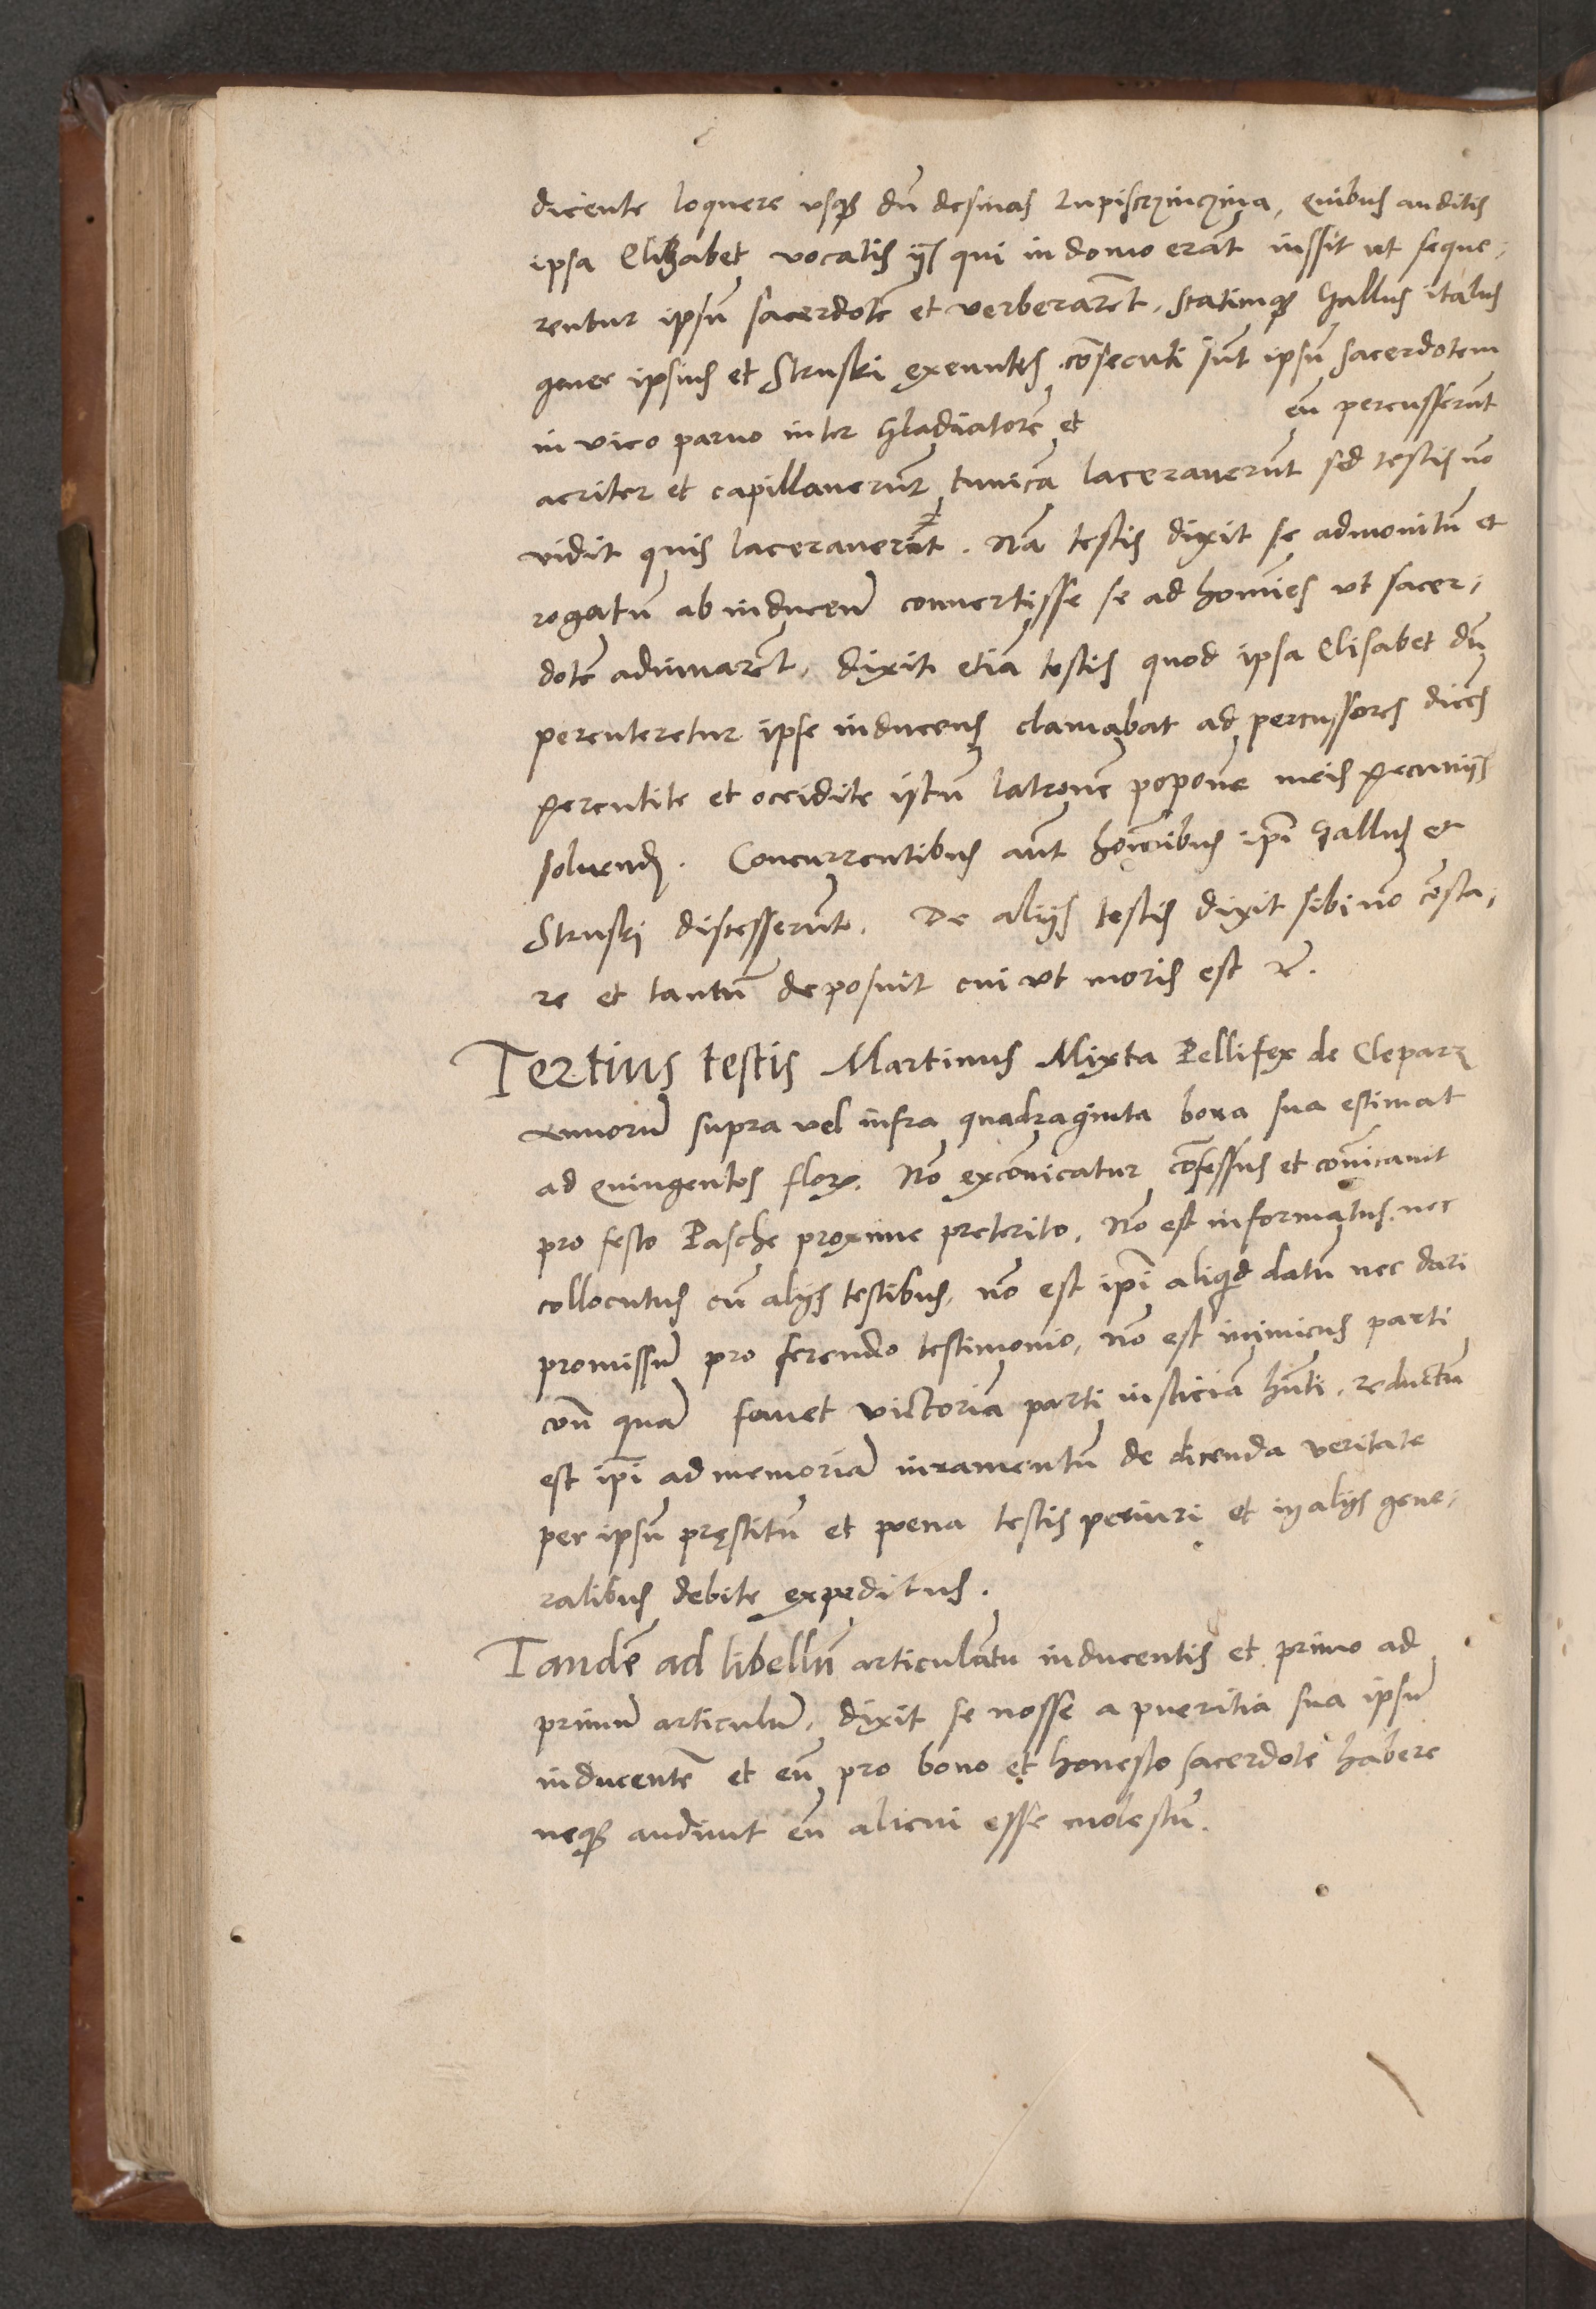 dicente loquere usq dū desinas Lupisczinczina, Quibus auditis
ipsa Elisabet vocatis ijs qui in domo erāt iussit ut seque,
rentur ipsū sacerdotē et verberarēt, statimq Gallus italus
gener ipsius et Struski exeuntes cōsecuti sūt ipsū sacerdotem
in vico paruo inter Gladiatorē et eū percusserūt
acriter et capillauerūt tunicā lacerauerūt sed testis nō
vidit quis lacerauerīt. Nā testis dixit se admonitū et
rogatū ab inducen conuertisse se ad homīes ut sacer,
dotē adiuuarēt, dixit etiā testis quod ipsa Elisabet dū
percuteretur ipse inducens clamabat ad percussores dicēs
percutite et occidite istū latronē popone meis pecunijs
soluend. Concurrentibus aūt hoīeribus ipī Gallus et
Struski discesserūt. De alijs testis dixit sibi nō cōsta,
re et tantū deposuit cui ut moris est
Tertius testis Martinus Mixta Pellifex de Clepar
Annorū supra vel infra quadraginta bona sua estimat
ad Quingentos flor. Nō excōicatur cōfessus et cōicauit
pro festo Pasche proxime preterito, Nō est informatus nec
collocutus cū alijs testibus, nō est ipī aliqd datū nec dari
promissū pro ferendo testimonio, nō est inimicus parti
con quā fauet victoriā parti iusticiā hūti, reductū
est ipī ad memoriā iuramentū de dicenda veritate
per ipsū pręstitū et poena testis periuri et in alijs gene,
ralibus debite expeditus.
Tandē ad libellū articulatū inducentis et primo ad
primū articulū, dixit se nosse a pueritia sua ipsū
inducentē et eū pro bono et honesto sacerdote habere
neq audiuit eū alicui esse molestū.